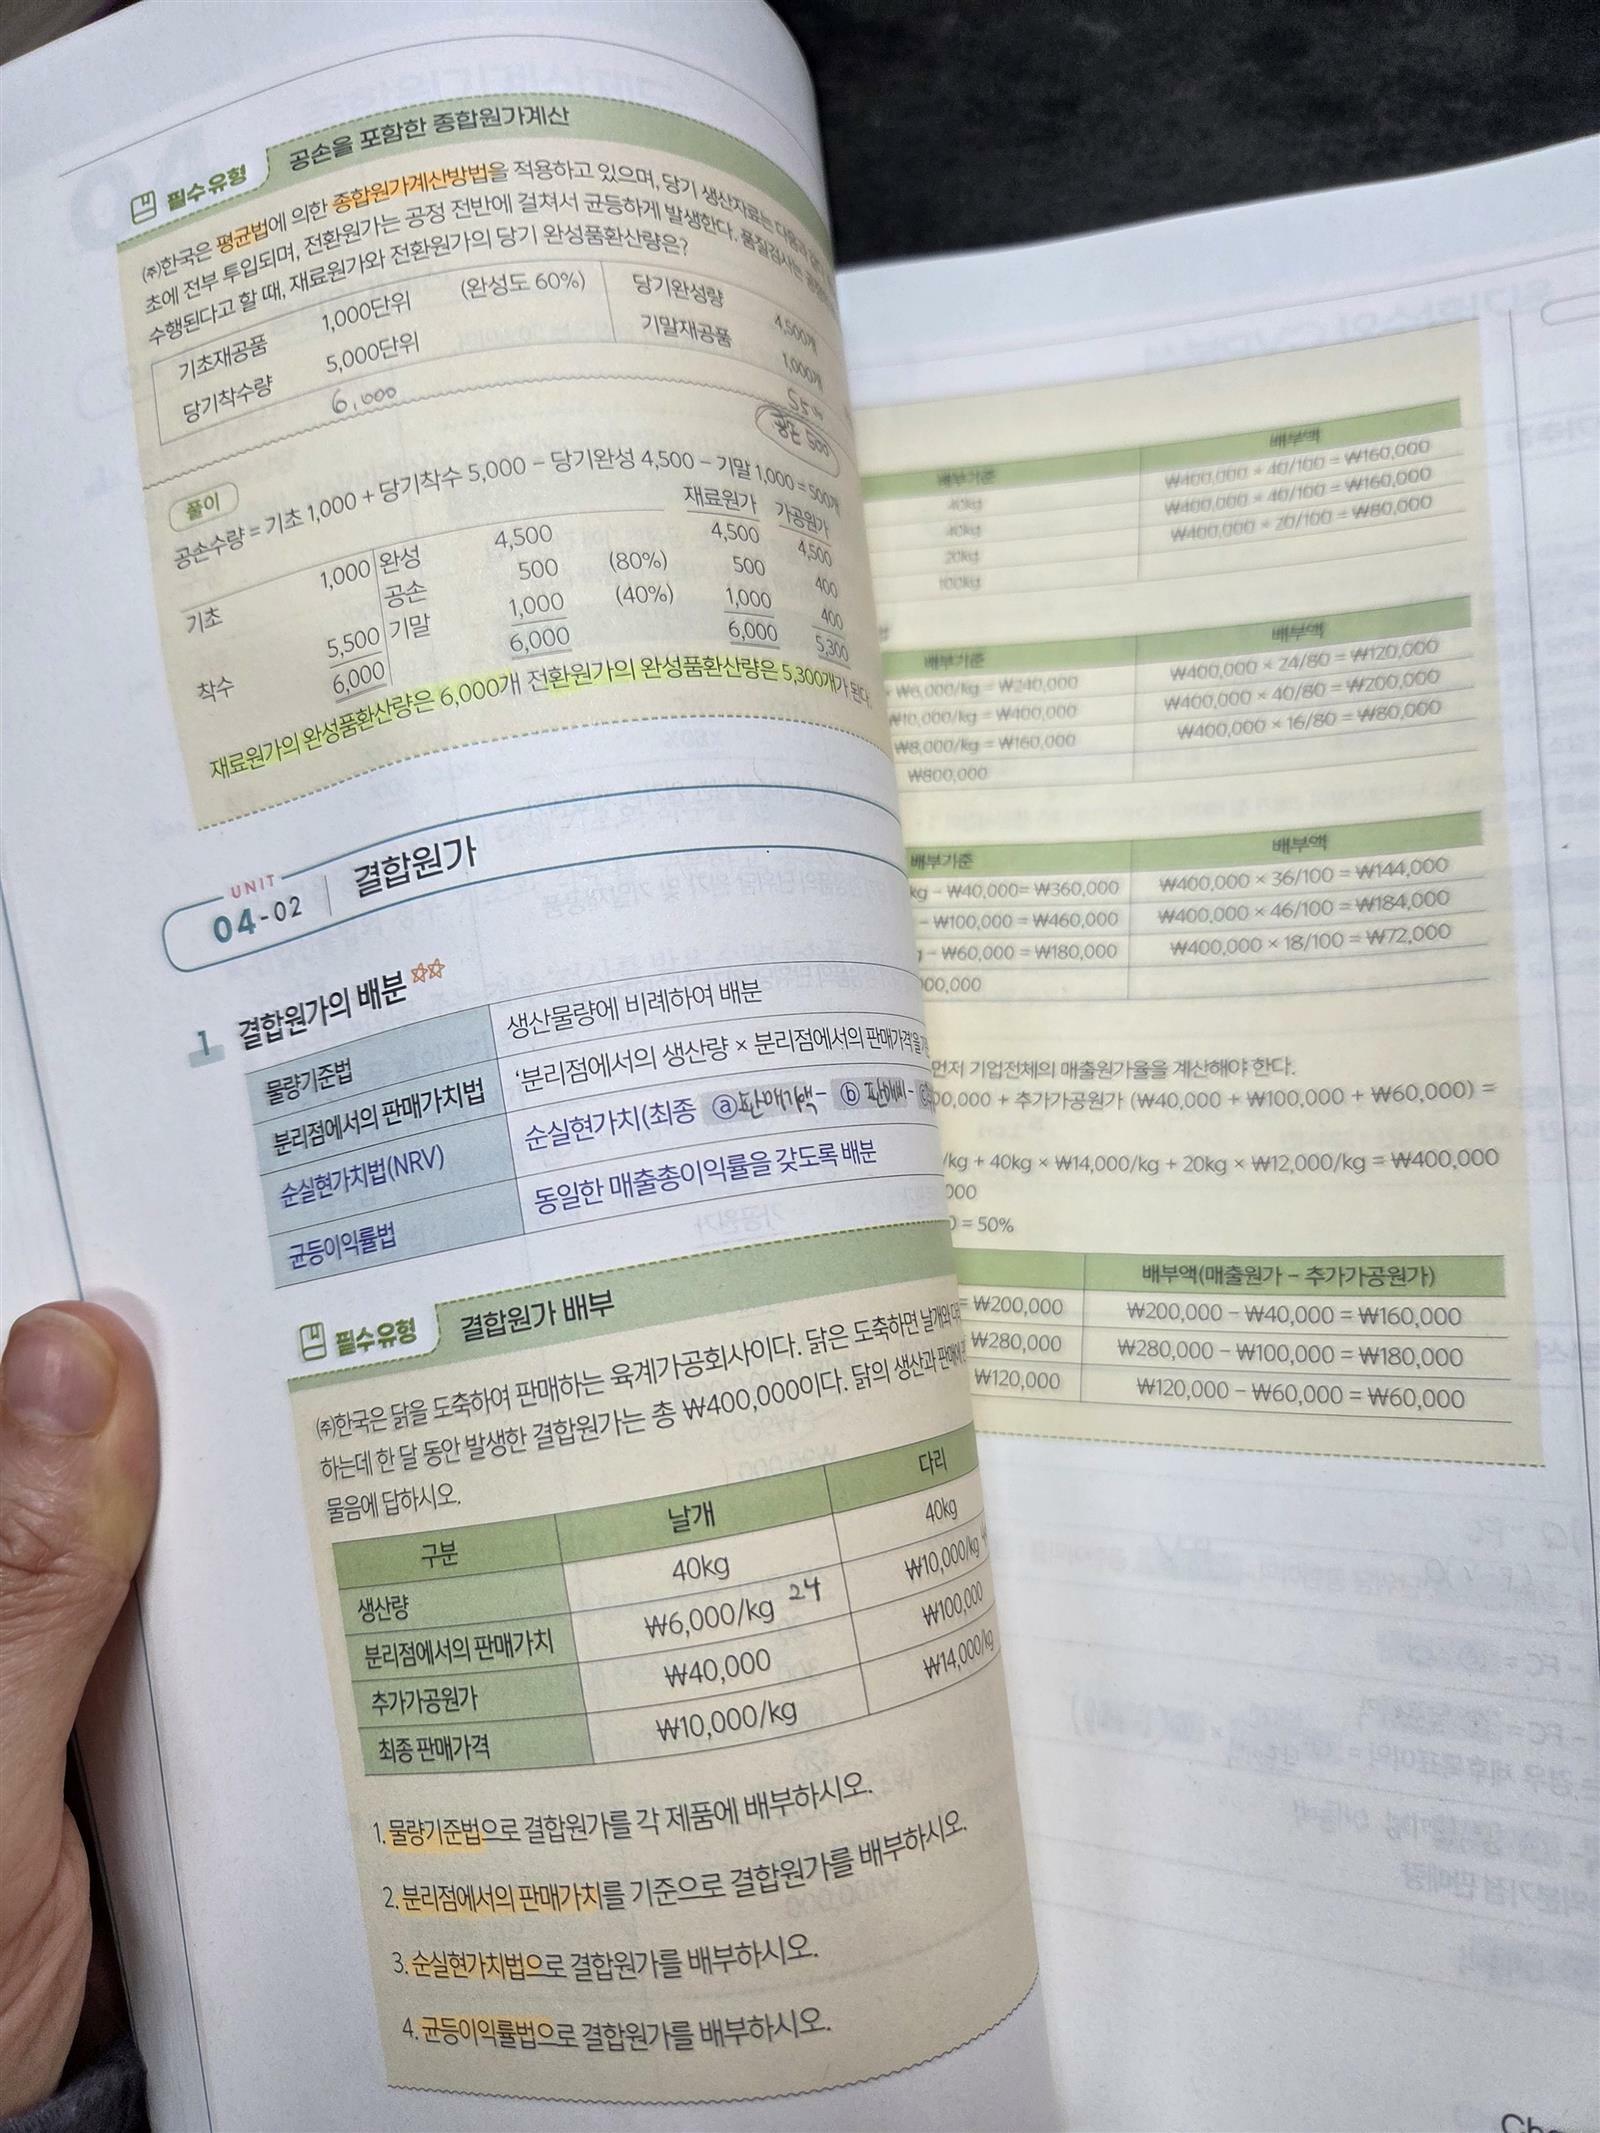 필수유형 공손을 포함한 종합원가계산
㈜한국은 평균법에 의한 종합원가계산방법을 적용하고 있으며, 당기 생산자료는 다음과
초에 전부 투입되며, 전환원가는 공정 전반에 걸쳐서 균등하게 발생한다. 품질검사는
수행된다고 할 때, 재료원가와 전환원가의 당기 완성품환산량은?
기초재공품 1,000단위 (완성도 60%) 당기완성량 4,500개
당기착수량 5,000단위 기말재공품 1,000개
6,000
공손 500
풀이
공손수량 = 기초 1,000 + 당기착수 5,000 − 당기완성 4,500 − 기말 1,000 = 500개
재료원가 가공원가
기초 1,000 완성 4,500 4,500 4,500
공손 500 (80%) 500 400
착수 5,500 기말 1,000 (40%) 1,000 400
6,000 6,000 6,000 5,300
재료원가의 완성품환산량은 6,000개 전환원가의 완성품환산량은 5,300개가 된다.
UNIT
04-02 결합원가
1 결합원가의 배분
물량기준법 생산물량에 비례하여 배분
분리점에서의 판매가치법 '분리점에서의 생산량 × 분리점에서의 판매가격'을
순실현가치법(NRV) 순실현가치(최종 ⓐ - ⓑ -
균등이익률법 동일한 매출총이익률을 갖도록 배분
필수유형 결합원가 배부
㈜한국은 닭을 도축하여 판매하는 육계가공회사이다. 닭은 도축하면 날개와
하는데 한 달 동안 발생한 결합원가는 총 ₩400,000이다. 닭의 생산과 판매에
물음에 답하시오.
구분 날개 다리
생산량 40kg 40kg
분리점에서의 판매가치 ₩6,000/kg 24 ₩10,000/kg
추가가공원가 ₩40,000 ₩100,000
최종 판매가격 ₩10,000/kg ₩14,000/kg
1. 물량기준법으로 결합원가를 각 제품에 배부하시오.
2. 분리점에서의 판매가치를 기준으로 결합원가를 배부하시오.
3. 순실현가치법으로 결합원가를 배부하시오.
4. 균등이익률법으로 결합원가를 배부하시오.
배부기준 배부액
40kg ₩400,000 × 40/100 = ₩160,000
40kg ₩400,000 × 40/100 = ₩160,000
20kg ₩400,000 × 20/100 = ₩80,000
100kg
배부기준 배부액
× ₩6,000/kg = ₩240,000 ₩400,000 × 24/80 = ₩120,000
₩10,000/kg = ₩400,000 ₩400,000 × 40/80 = ₩200,000
₩8,000/kg = ₩160,000 ₩400,000 × 16/80 = ₩80,000
₩800,000
배부기준 배부액
kg − ₩40,000= ₩360,000 ₩400,000 × 36/100 = ₩144,000
− ₩100,000 = ₩460,000 ₩400,000 × 46/100 = ₩184,000
− ₩60,000 = ₩180,000 ₩400,000 × 18/100 = ₩72,000
00,000
먼저 기업전체의 매출원가율을 계산해야 한다.
00,000 + 추가가공원가 (₩40,000 + ₩100,000 + ₩60,000) =
/kg + 40kg × ₩14,000/kg + 20kg × ₩12,000/kg = ₩400,000
000
= 50%
배부액(매출원가 − 추가가공원가)
= ₩200,000 ₩200,000 − ₩40,000 = ₩160,000
₩280,000 ₩280,000 − ₩100,000 = ₩180,000
₩120,000 ₩120,000 − ₩60,000 = ₩60,000